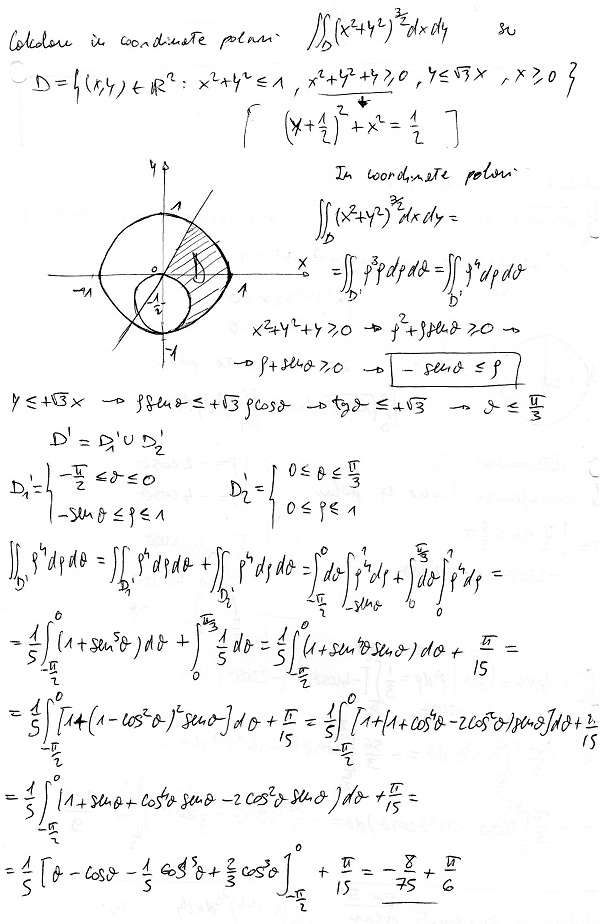 Calcolare in coordinate polari ∬_D (x²+y²)^{3/2} dxdy su
D = {(x,y) ∈ ℝ² : x²+y² ≤ 1, x²+y²+y ≥ 0, y ≤ √3 x, x ≥ 0}
[(y+1/2)² + x² = 1/2]
In coordinate polari
∬_D (x²+y²)^{3/2} dxdy =
= ∬_{D'} ρ³ρ dρdϑ = ∬_{D'} ρ⁴ dρdϑ
y
1
x
0
D
-1
1
-1/2
-1
x²+y²+y ≥ 0 → ρ²+ρ senϑ ≥ 0 →
→ ρ + senϑ ≥ 0 → - senϑ ≤ ρ
y ≤ +√3 x → ρ senϑ ≤ +√3 ρ cosϑ → tgϑ ≤ +√3 → ϑ ≤ π/3
D' = D₁' ∪ D₂'
D₁' = { -π/2 ≤ ϑ ≤ 0 D₂' = { 0 ≤ ϑ ≤ π/3
-senϑ ≤ ρ ≤ 1 0 ≤ ρ ≤ 1
∬_{D'} ρ⁴ dρdϑ = ∬_{D₁'} ρ⁴ dρdϑ + ∬_{D₂'} ρ⁴ dρdϑ = ∫_{-π/2}^{0} dϑ ∫_{-senϑ}^{1} ρ⁴ dρ + ∫_{0}^{π/3} dϑ ∫_{0}^{1} ρ⁴ dρ =
= 1/5 ∫_{-π/2}^{0} (1+sen⁵ϑ) dϑ + ∫_{0}^{π/3} 1/5 dϑ = 1/5 ∫_{-π/2}^{0} (1+sen⁴ϑ senϑ) dϑ + π/15 =
= 1/5 ∫_{-π/2}^{0} [1+(1-cos²ϑ)² senϑ] dϑ + π/15 = 1/5 ∫_{-π/2}^{0} [1+(1+cos⁴ϑ-2cos²ϑ) senϑ] dϑ + π/15
= 1/5 ∫_{-π/2}^{0} (1+senϑ+cos⁴ϑ senϑ-2cos²ϑ senϑ) dϑ + π/15 =
= 1/5 [ϑ - cosϑ - 1/5 cos⁵ϑ + 2/3 cos³ϑ]_{-π/2}^{0} + π/15 = -8/75 + π/6